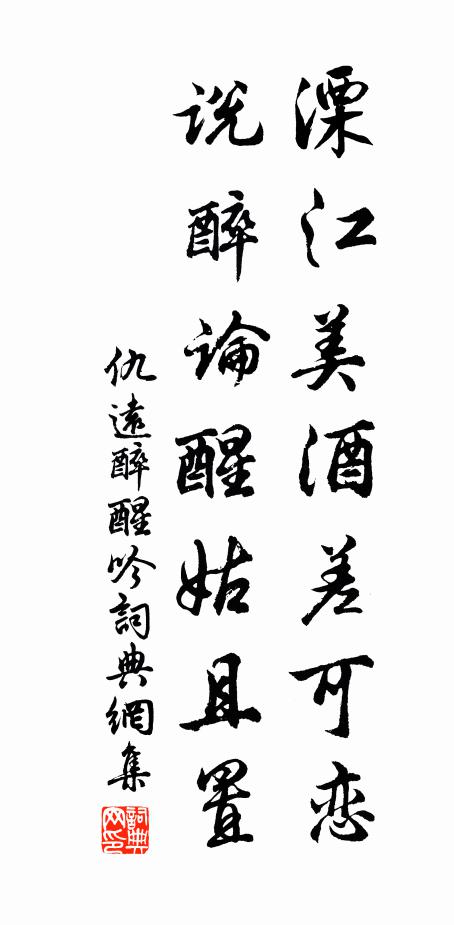 溧江美酒差可恋
说醉论醒姑且置
仇遠醉醒吟詞典網集
詞典网印